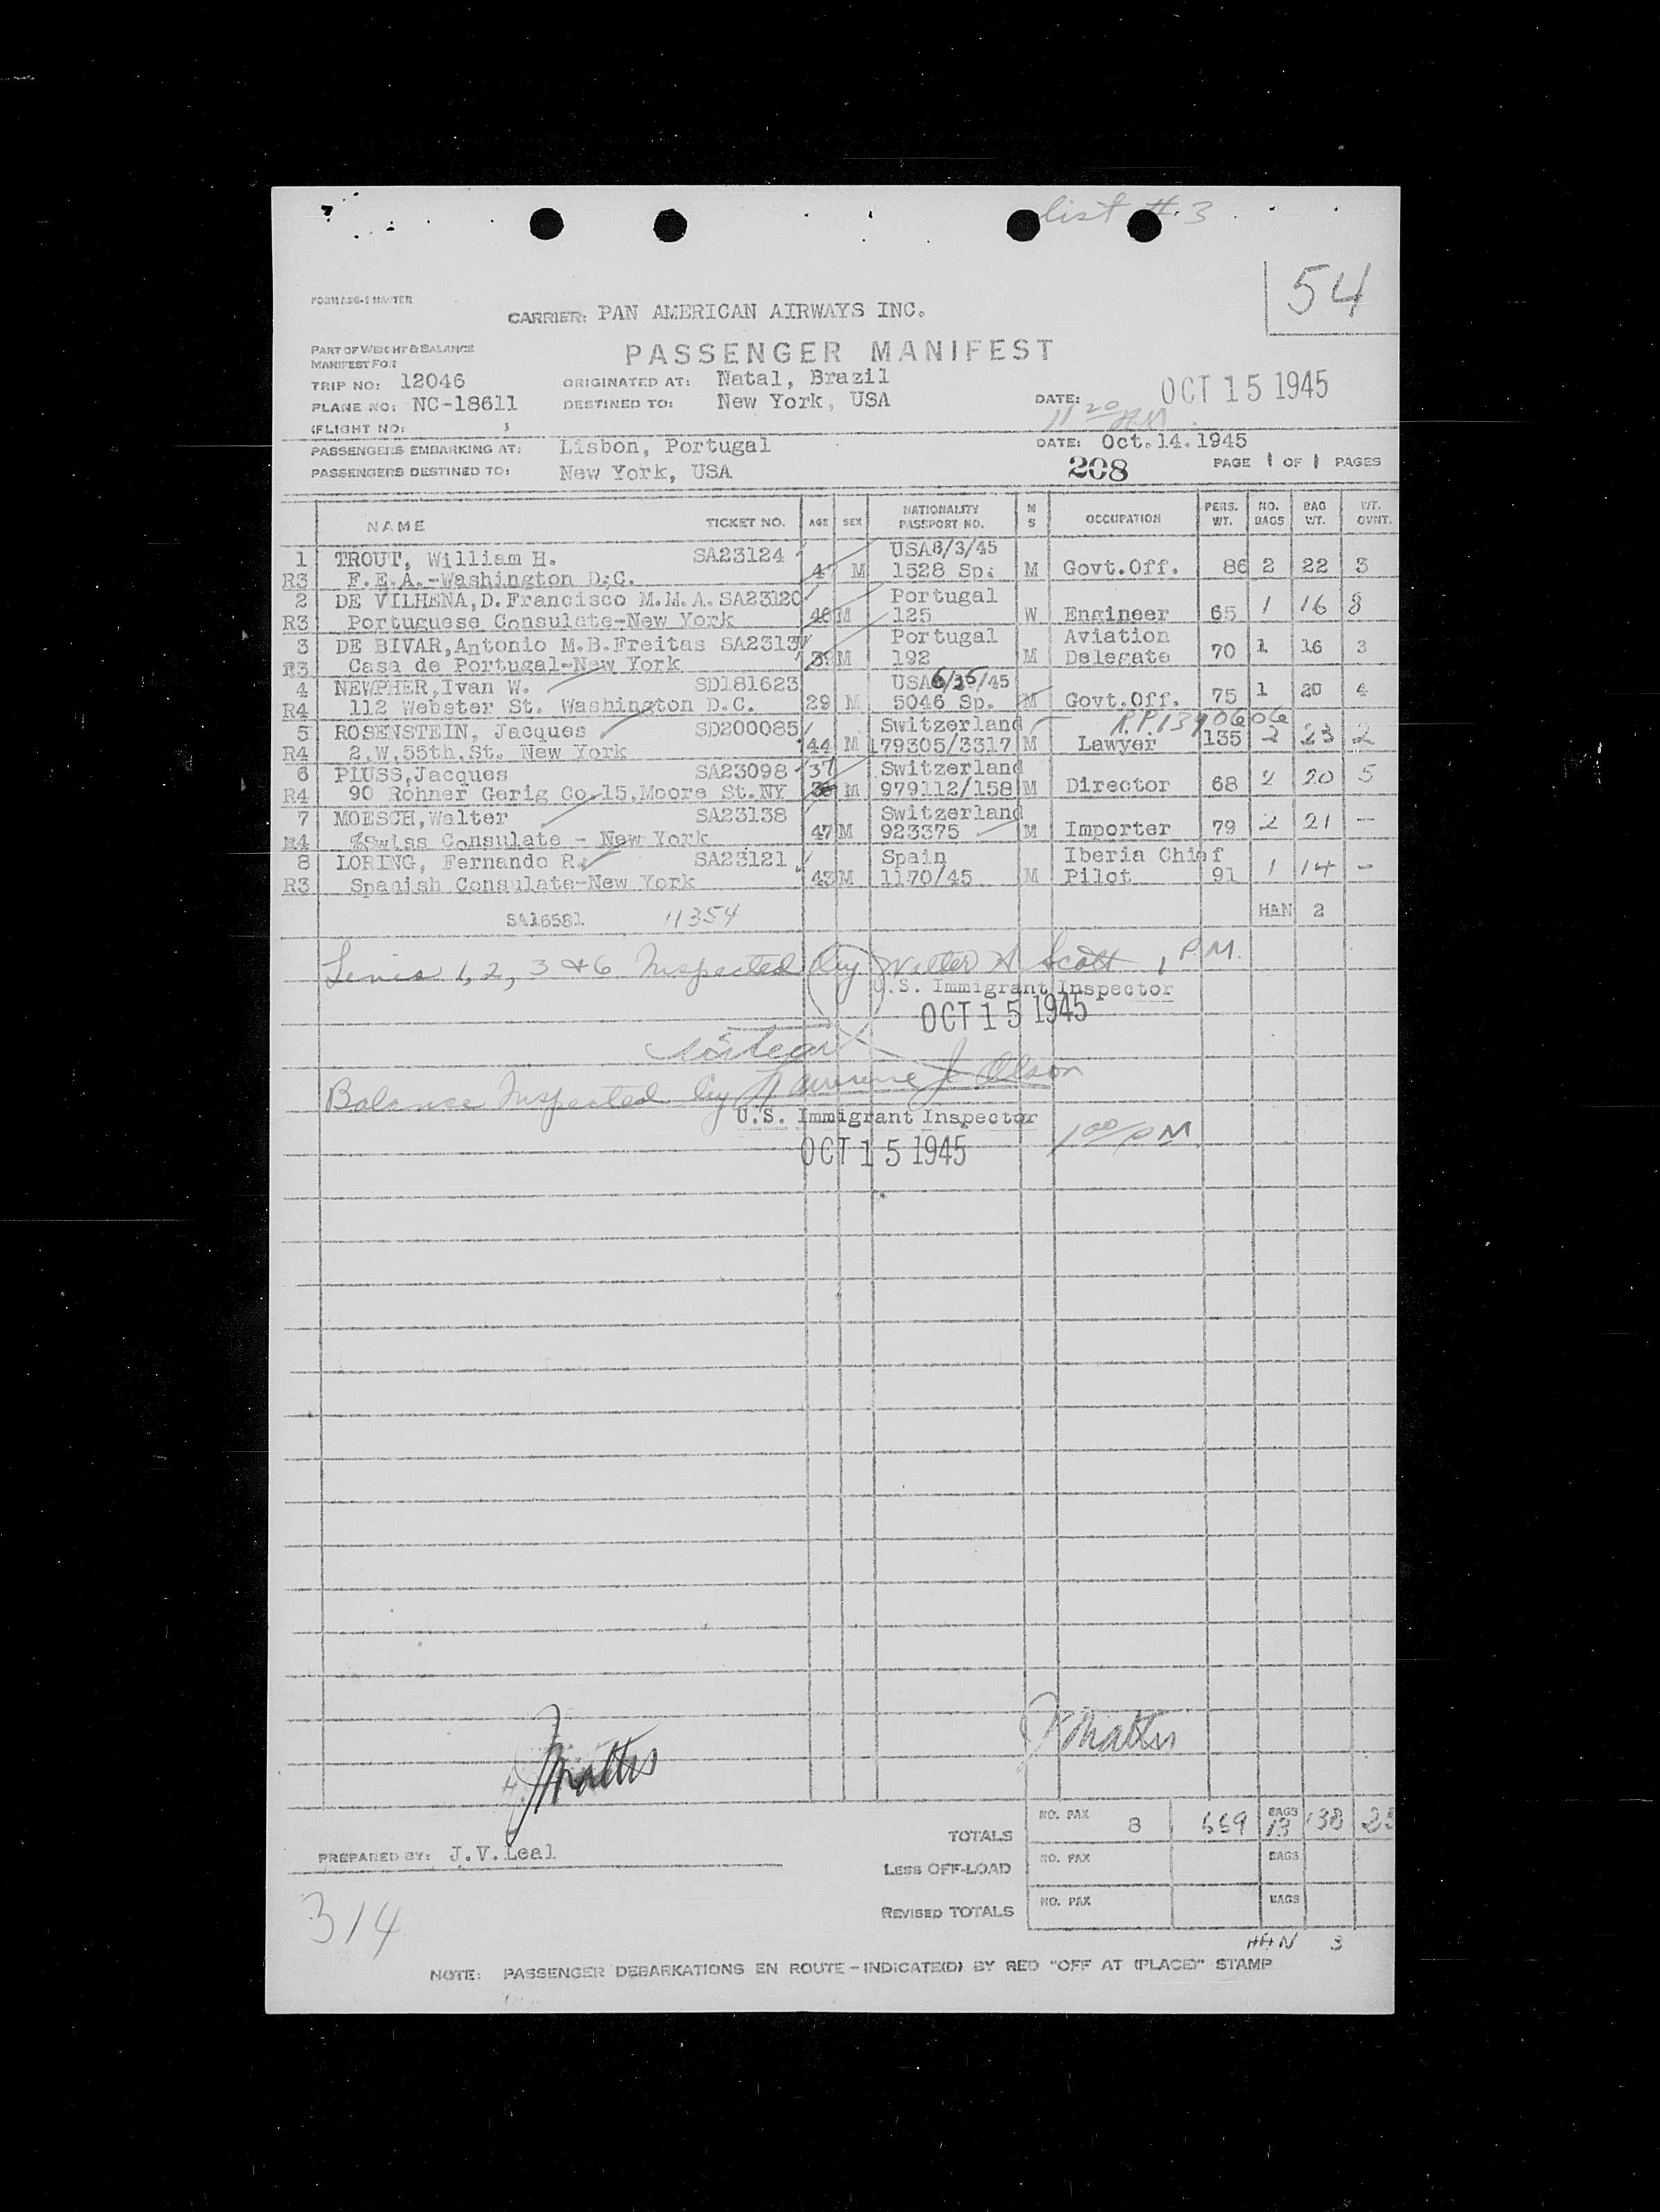 list #3
54
FORM ABG-1 MASTER
CARRIER: PAN AMERICAN AIRWAYS INC.
PART OF WEIGHT & BALANCE
MANIFEST FOR
PASSENGER MANIFEST
TRIP NO: 12046 ORIGINATED AT: Natal, Brazil OCT 15 1945
PLANE NO: NC-18611 DESTINED TO: New York, USA DATE:
FLIGHT NO: 11 20 AM
PASSENGERS EMBARKING AT: Lisbon, Portugal DATE: Oct.14.1945
PASSENGERS DESTINED TO: New York, USA 208 PAGE 1 OF 1 PAGES
NAME TICKET NO. AGE SEX NATIONALITY PASSPORT NO. M S OCCUPATION PERS. WT. NO. BAGS BAG WT. WT. OVNT.
1 TROUT, William H. SA23124 USA8/3/45
R3 F.E.A.-Washington D.C. 47 M 1528 Sp. M Govt.Off. 86 2 22 3
2 DE VILHENA,D.Francisco M.M.A. SA23120 Portugal
R3 Portuguese Consulate-New York 46 M 125 W Engineer 65 1 16 8
3 DE BIVAR,Antonio M.B.Freitas SA2313 Portugal Aviation
R3 Casa de Portugal-New York 39 M 192 M Delegate 70 1 16 3
4 NEWPHER,Ivan W. SD181623 USA6/26/45
R4 112 Webster St. Washington D.C. 29 M 5046 Sp. M Govt.Off. 75 1 20 4
5 ROSENSTEIN, Jacques SD200085 Switzerland R.P.1390606
R4 2,W,55th,St. New York 44 M 179305/3317 M Lawyer 135 2 23 2
6 PLUSS,Jacques SA23098 37 Switzerland
R4 90 Rohner Gerig Co.15,Moore St.NY 38 M 979112/158 M Director 68 2 20 5
7 MOESCH,Walter SA23138 Switzerland
R4 %Swiss Consulate - New York 47 M 923375 M Importer 79 2 21 -
8 LORING, Fernando R. SA23121 Spain Iberia Chief
R3 Spanish Consulate-New York 43 M 1170/45 M Pilot 91 1 14 -
SA16581 11354 HAN 2
Lines 1, 2, 3 & 6 Inspected by Walter A Scott, P.M.
U.S. Immigrant Inspector
OCT 15 1945
Balance Inspected by Lawrence J. Olson
U.S. Immigrant Inspector
OCT 15 1945 1 00 PM
TOTALS NO. PAX 8 669 BAGS 13 138 25
PREPARED BY: J.V.Leal
LESS OFF-LOAD NO. PAX BAGS
REVISED TOTALS NO. PAX BAGS
314
HAN 3
NOTE: PASSENGER DEBARKATIONS EN ROUTE - INDICATE(D) BY RED "OFF AT (PLACE)" STAMP